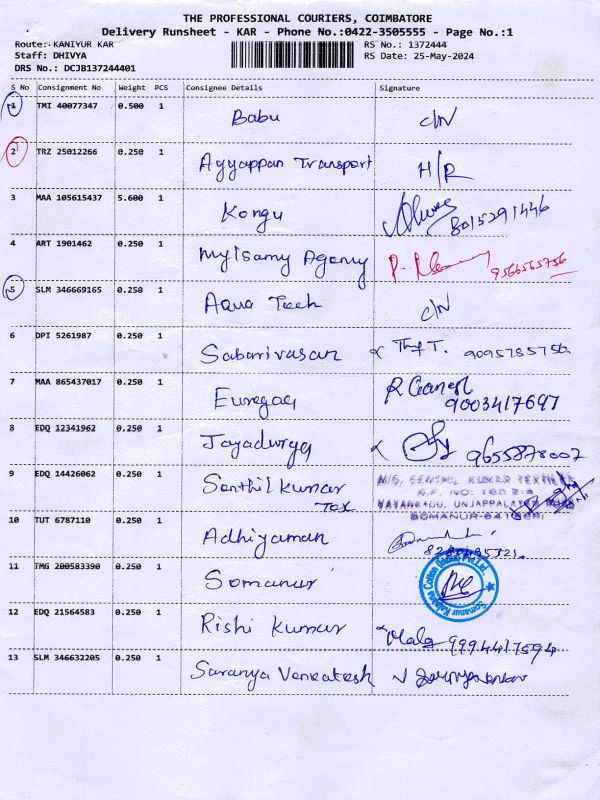 THE PROFESSIONAL COURIERS, COIMBATORE
Delivery Runsheet - KAR - Phone No.:0422-3505555 - Page No.:1
Route: KANIYUR KAR RS No.: 1372444
Staff: DHIVYA RS Date: 25-May-2024
DRS No.: DCJB137244401
S No Consignment No Weight PCS Consignee Details Signature
1 TMI 40077347 0.500 1 Babu C/N
2 TRZ 25012266 0.250 1 Ayyappan Transport H/R
3 MAA 105615437 5.600 1 Kongu 8015291446
4 ART 1901462 0.250 1 Mylsamy Agamy 9566565756
5 SLM 346669165 0.250 1 Aqua Tech C/N
6 DPI 5261987 0.250 1 Sabarivasan 9095785756
7 MAA 865437017 0.250 1 R Ganesh 9003417697
8 EDQ 12341962 0.250 1 Jayadurga 9655878007
9 EDQ 14426062 0.250 1 Senthil Kumar Tex M/S. SENTHIL KUMAR TEXTILES
S.F. NO: 160
UNJAPPALAYAM ROAD
SOMANUR-641
10 TUT 6787110 0.250 1 Adhiyaman
11 TMG 200583390 0.250 1 Somanur Somanur Kalpana Cotton (India) Pvt.Ltd.,
12 EDQ 21564583 0.250 1 Rishi Kumar Mala 9994417594
13 SLM 346632205 0.250 1 Saranya Venkatesh